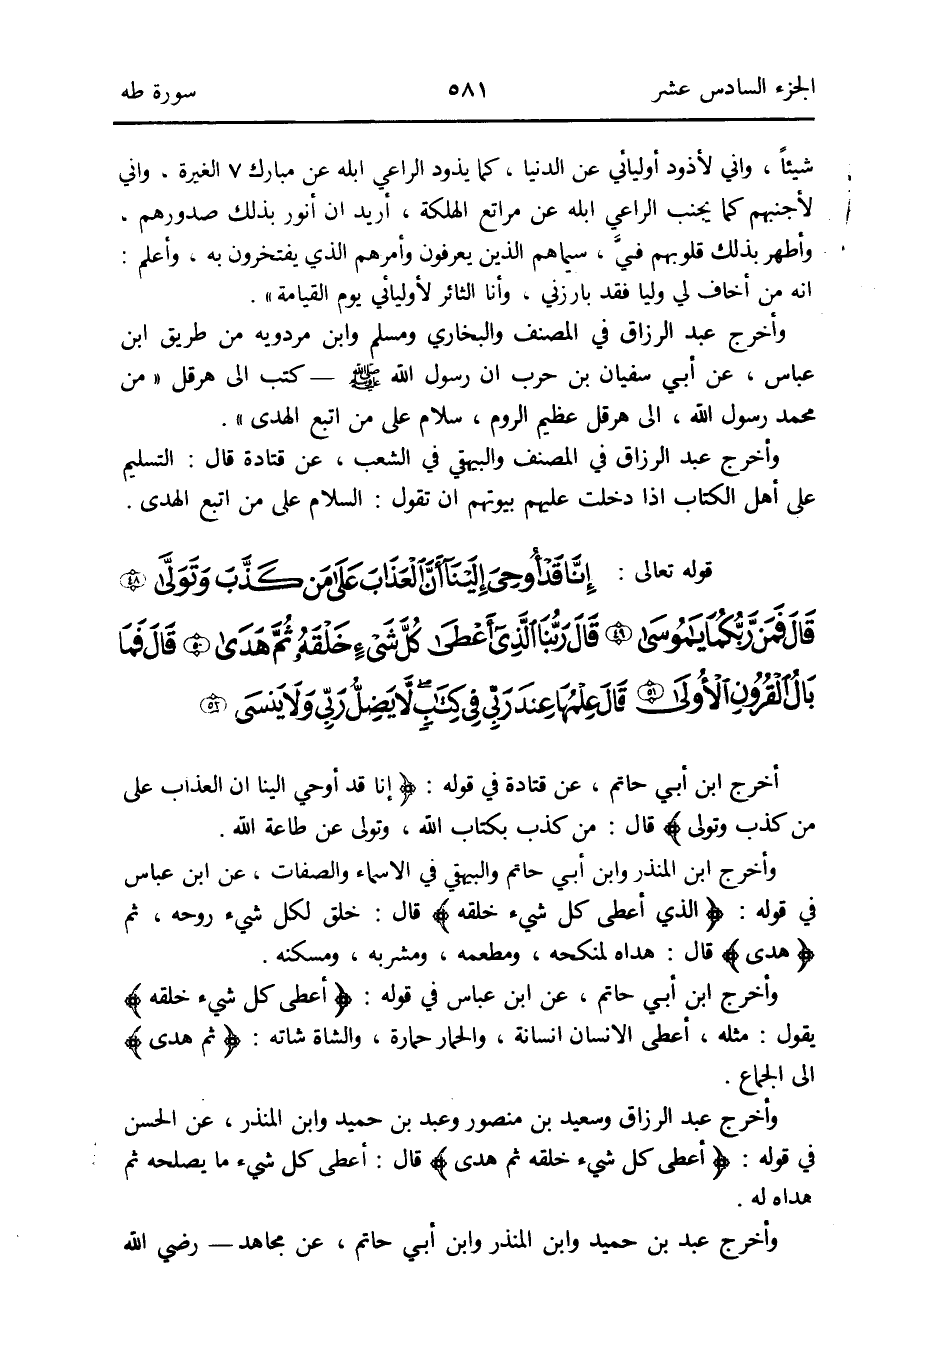 الجزء السادس عشر ٥٨١ سورة طه
شيئاً ، واني لأذود أوليائي عن الدنيا ، كما يذود الراعي ابله عن مبارك ٧ الغيرة . واني
لأجنبهم كما يجنب الراعي ابله عن مراتع الهلكة ، أريد ان أنور بذلك صدورهم .
وأطهر بذلك قلوبهم فيَّ ، سيماهم الذين يعرفون وأمرهم الذي يفتخرون به ، وأعلم :
انه من أخاف لي وليا فقد بارزني ، وأنا الثائر لأوليائي يوم القيامة » .
وأخرج عبد الرزاق في المصنف والبخاري ومسلم وابن مردويه من طريق ابن
عباس ، عن أبي سفيان بن حرب ان رسول الله ﷺ — كتب الى هرقل « من
محمد رسول الله ، الى هرقل عظيم الروم ، سلام على من اتبع الهدى » .
وأخرج عبد الرزاق في المصنف والبيهقي في الشعب ، عن قتادة قال : التسليم
على أهل الكتاب اذا دخلت عليهم بيوتهم ان تقول : السلام على من اتبع الهدى .
قوله تعالى : إِنَّا قَدْ أُوحِيَ إِلَيْنَا أَنَّ الْعَذَابَ عَلَىٰ مَن كَذَّبَ وَتَوَلَّىٰ ٤٨
قَالَ فَمَن رَّبُّكُمَا يَامُوسَىٰ ٤٩ قَالَ رَبُّنَا الَّذِي أَعْطَىٰ كُلَّ شَيْءٍ خَلْقَهُ ثُمَّ هَدَىٰ ٥٠ قَالَ فَمَا
بَالُ الْقُرُونِ الْأُولَىٰ ٥١ قَالَ عِلْمُهَا عِندَ رَبِّي فِي كِتَابٍ لَّا يَضِلُّ رَبِّي وَلَا يَنسَى ٥٢
أخرج ابن أبي حاتم ، عن قتادة في قوله : ﴿ إنا قد أوحي الينا ان العذاب على
من كذب وتولى ﴾ قال : من كذب بكتاب الله ، وتولى عن طاعة الله .
وأخرج ابن المنذر وابن أبي حاتم والبيهقي في الاسماء والصفات ، عن ابن عباس
في قوله : ﴿ الذي أعطى كل شيء خلقه ﴾ قال : خلق لكل شيء روحه ، ثم
﴿ هدى ﴾ قال : هداه لمنكحه ، ومطعمه ، ومشربه ، ومسكنه .
وأخرج ابن أبي حاتم ، عن ابن عباس في قوله : ﴿ أعطى كل شيء خلقه ﴾
يقول : مثله ، أعطى الانسان انسانة ، والحمار حمارة ، والشاة شاته : ﴿ ثم هدى ﴾
الى الجماع .
وأخرج عبد الرزاق وسعيد بن منصور وعبد بن حميد وابن المنذر ، عن الحسن
في قوله : ﴿ أعطى كل شيء خلقه ثم هدى ﴾ قال : أعطى كل شيء ما يصلحه ثم
هداه له .
وأخرج عبد بن حميد وابن المنذر وابن أبي حاتم ، عن مجاهد — رضي الله